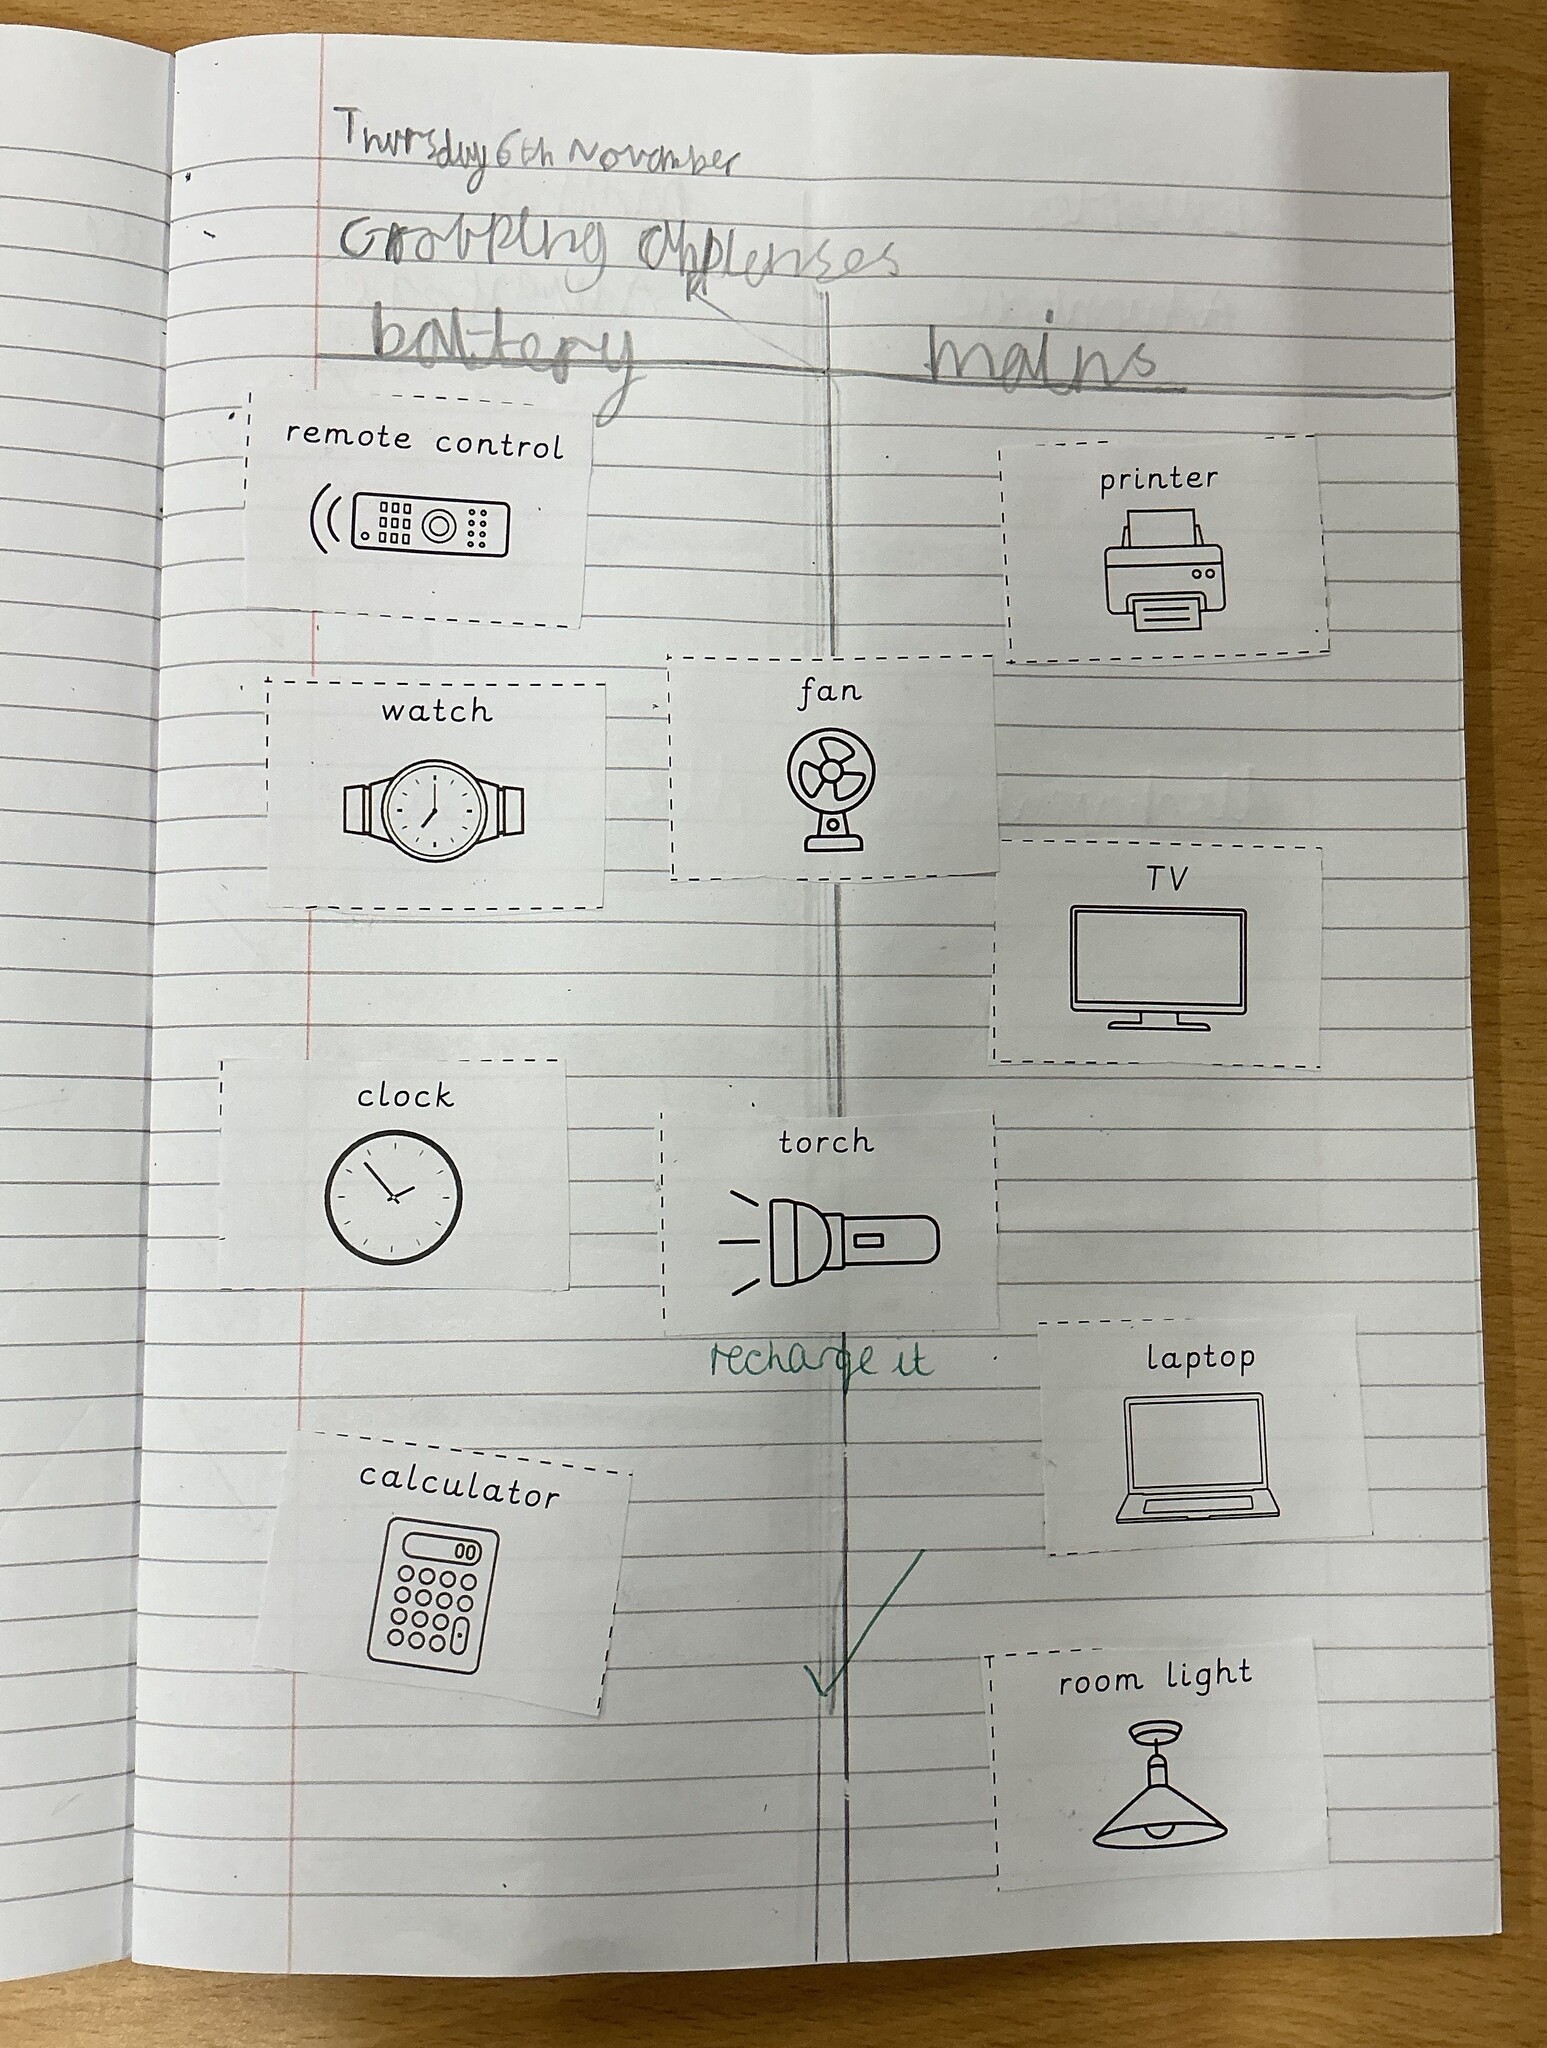 Thursday 6th November
Grouping applenses
battery
mains
remote control
printer
watch
fan
TV
clock
torch
recharge it
laptop
calculator
00
room light